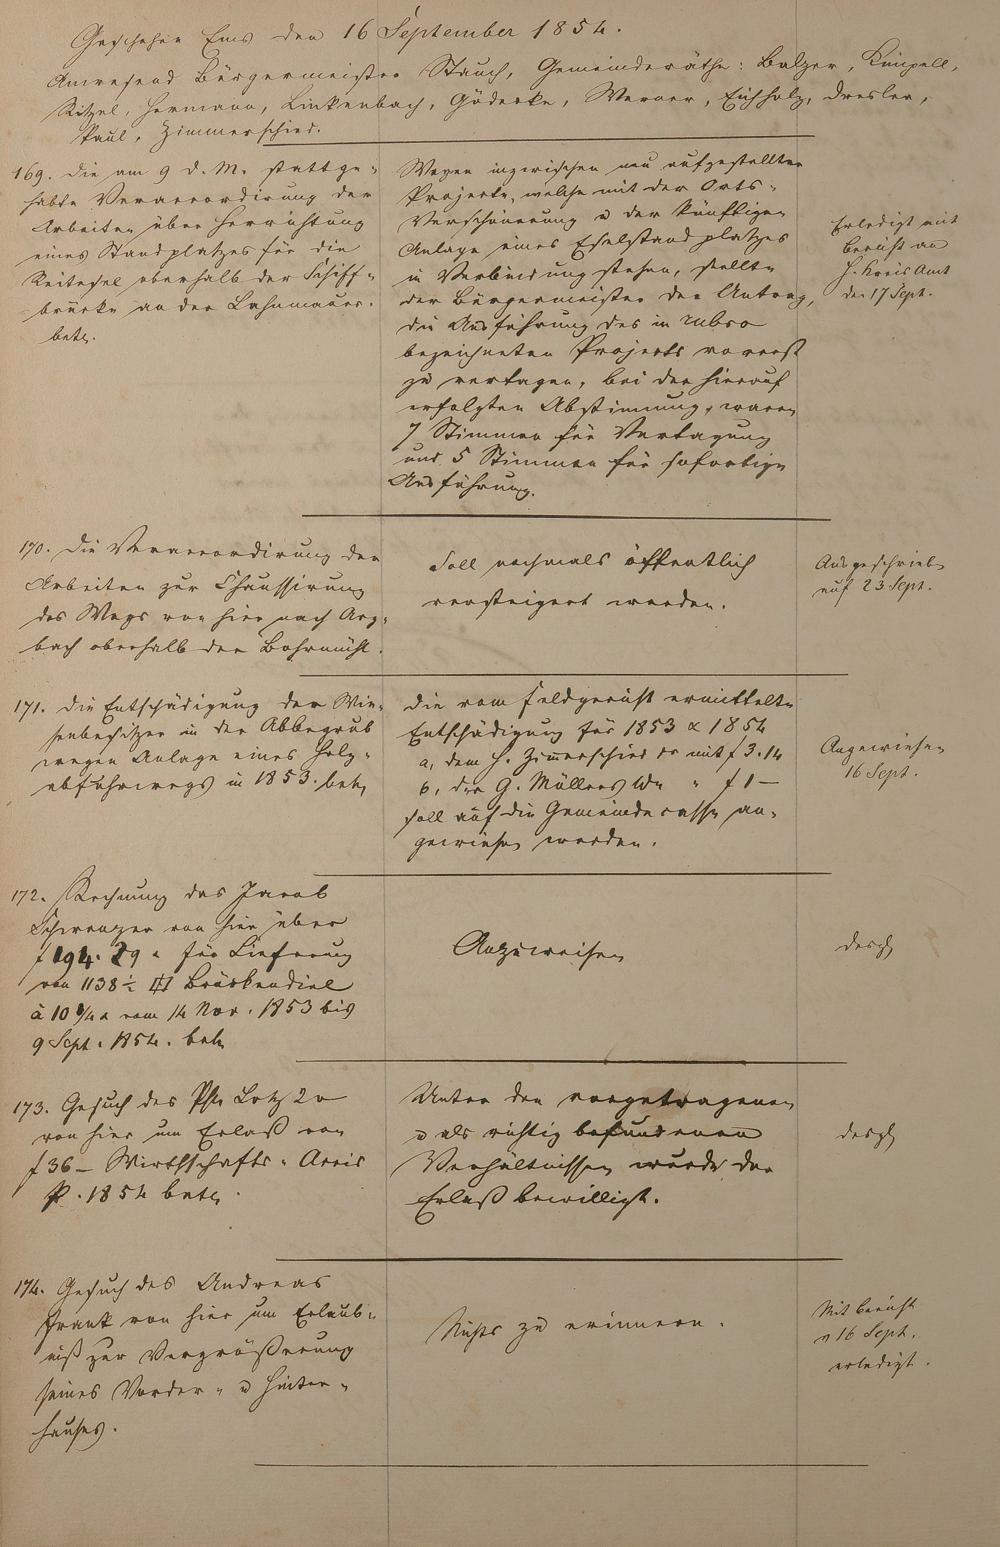 Geschehen Ems den 16 September 1854.
Anwesend Bürgermeister Stauch, Gemeinderäthe: Balzer, Rimpell,
Ritzel, Hermann, Linkenbach, Gödecke, Werner, Eichholz, Dresler,
Paul, Zimmerschied.
169. Die am 9 d. M. stattge-
habte Veraccordirung der
Arbeiten über Herrichtung
eines Standplatzes für die
Reitesel oberhalb der Schiff-
brücke an der Lahnmauer
betr.
Wegen inzwischen neu aufgestellter
Projecte, welche mit der Orts-
Verschönerung u der künftigen
Anlage eines Eselstandplatzes
in Verbindung stehen, stellte
der Bürgermeister den Antrag,
die Ausführung des in rubro
bezeichneten Projects vorerst
zu vertagen, bei der hierauf
erfolgten Abstimmung, waren
7 Stimmen für Vertagung
und 5 Stimmen für sofortige
Ausführung.
Erledigt mit
Bericht an
H. Kreis Amt
den 17 Sept.
170. Die Veraccordirung der
Arbeiten zur Chaussirung
des Wegs von hier nach Arz-
bach oberhalb der Bohrmühl.
Soll nochmals öffentlich
versteigert werden.
Ausgeschrieb
auf 23 Sept.
171. Die Entschädigung der Wie-
senbesitzer in der
wegen Anlage eines Holz-
abfuhrwegs in 1853. betr
Die vom Feldgericht ermittelte
Entschädigung für 1853 & 1854
a, dem H. Zimmerschied mit f 3.14
b, der G. Müllers Wwe " f 1 —
soll auf die Gemeindecasse an-
gewiesen werden.
Angewiesen
16 Sept.
172. Rechnung des Jacob
Schwenzer von hier über
f 194. 29 x für Lieferung
von 1138½ Brückendiel
à 10¼ x vom 14 Nov. 1853 bis
9 Sept. 1854. betr
Anzuweisen
desgl
173. Gesuch des Lotz 2r
von hier um Erlaß von
f 36 — Wirthschafts-Accis
p. 1854 betr.
Unter den vorgetragenen
u als richtig befundenen
Verhältnissen wurde der
Erlaß bewilligt.
desgl
174. Gesuch des Andreas
Frank von hier um Erlaub-
niß zur Vergrößerung
seines Vorder- u Hinter-
hauses.
Nichts zu erinnern.
Mit Bericht
v 16 Sept.
erledigt.